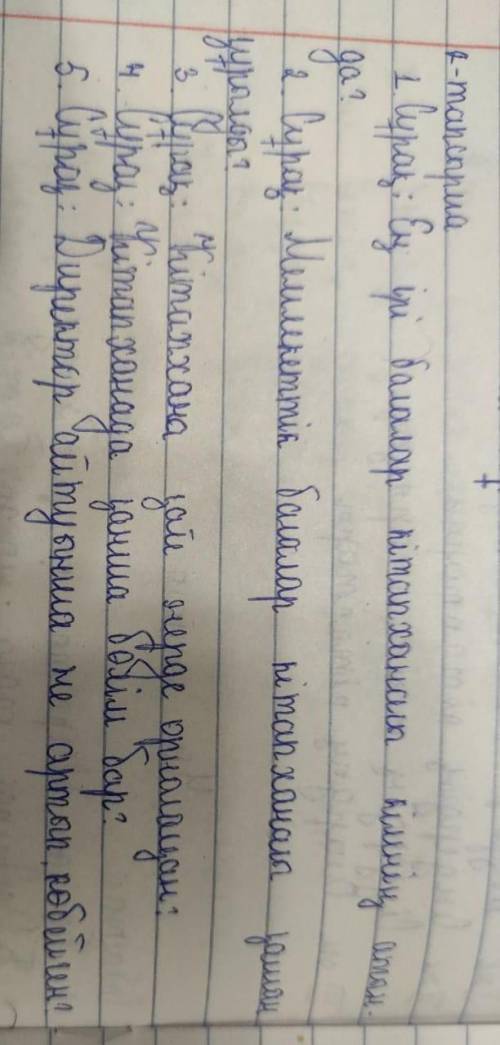 2-тапсырма
1. Сұрақ: Ең ірі балалар кітапханасы кімнің атын-
да?
2. Сұрақ: Мемлекеттік балалар кітапханасы қашан
құралды?
3. Сұрақ: Кітапхана қай жерде орналасқан?
4. Сұрақ: Кітапханада қанша бөлім бар?
5. Сұрақ: Директор айтуынша не артып, көбейген?